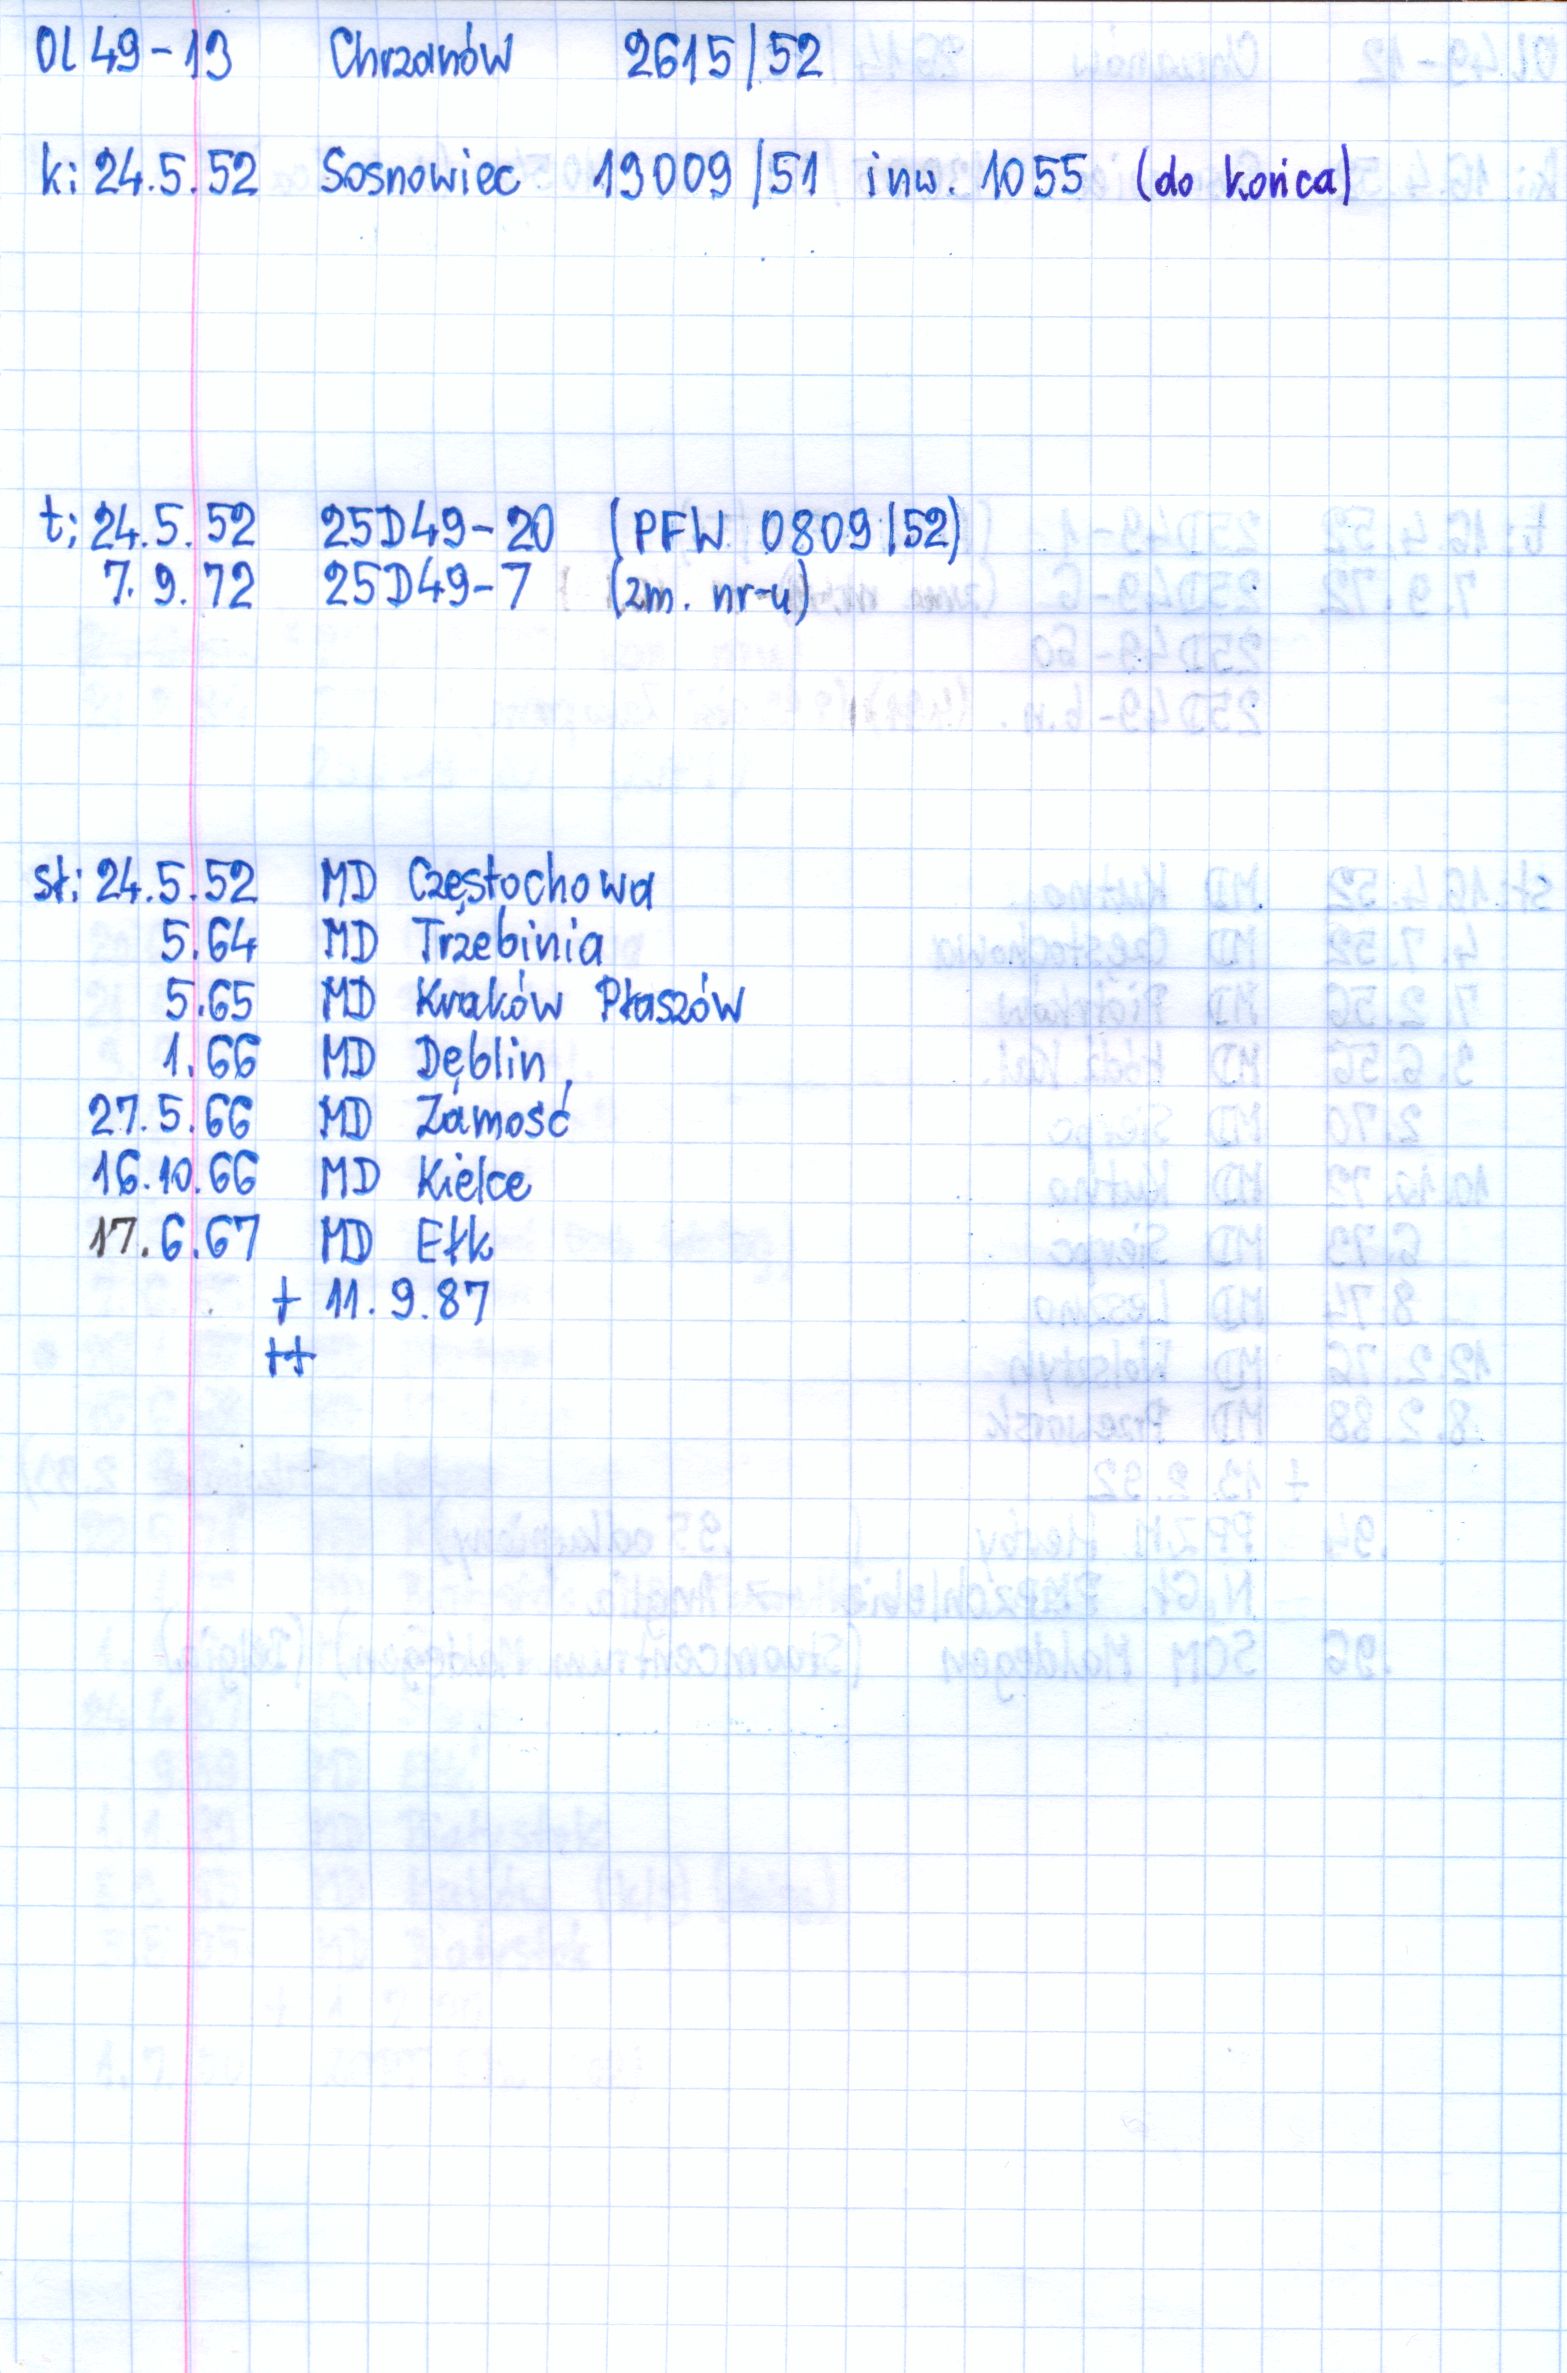 Ol 49-13 Chrzanów 2615/52
k: 24.5.52 Sosnowiec 19009/51 inw. 1055 (do końca)
t: 24.5.52 25D49-20 (PFW 0809/52)
7.9.72 25D49-7 (zm. nr-u)
st: 24.5.52 MD Częstochowa
5.64 MD Trzebinia
5.65 MD Kraków Płaszów
1.66 MD Dęblin
27.5.66 MD Zamość
16.10.66 MD Kielce
17.6.67 MD Ełk
+ 11.9.87
++